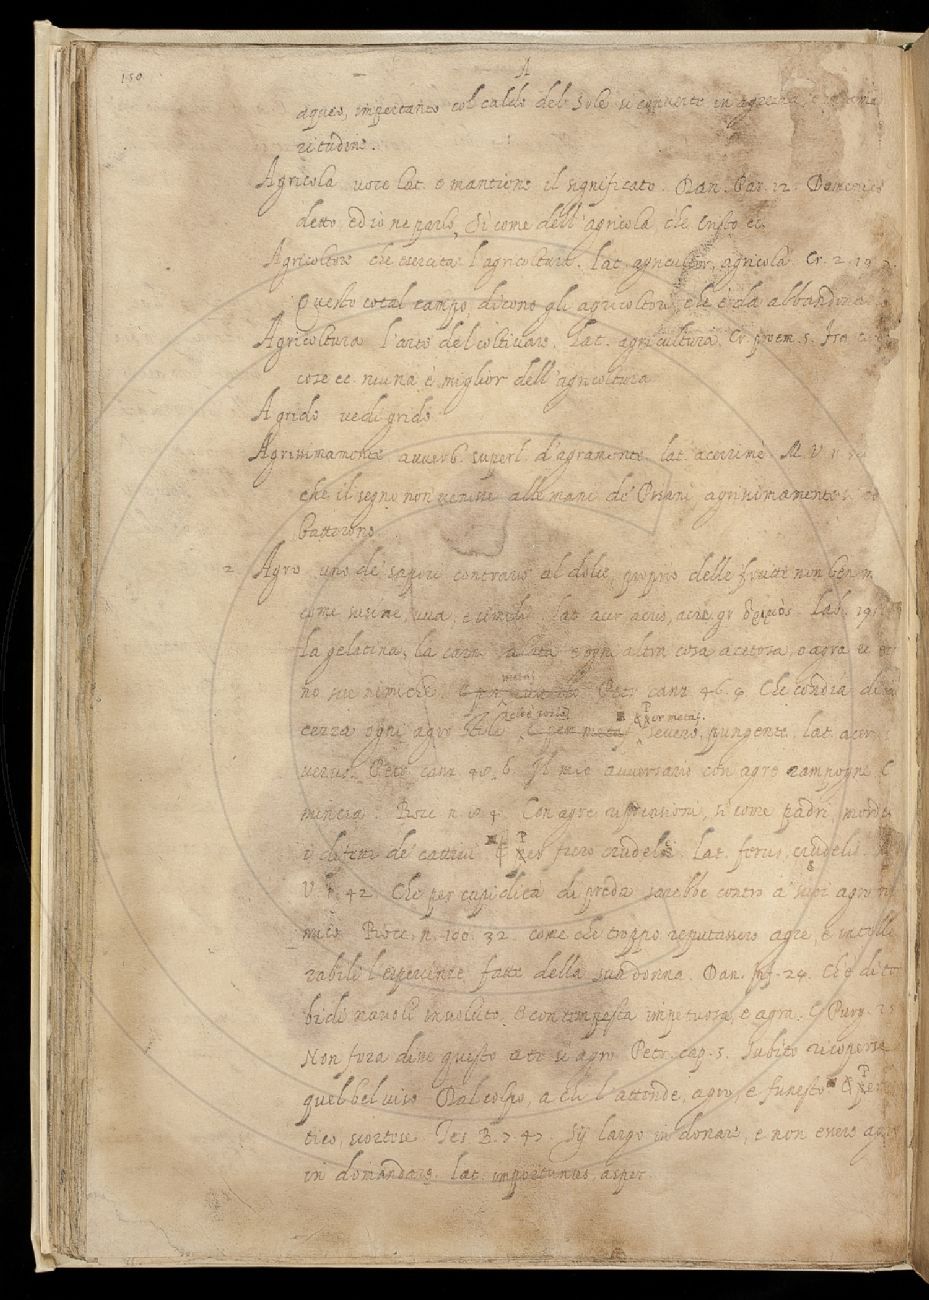 150
A
aqueo, impertanto col caldo del Sole si converte in
ritudine.
Agricola voce lat. e mantiene il significato. Dan. Par. 12. Domenico
detto, ed io ne parlo, Sì come dell'agricola, che Cristo ec.
Agricoltore che esercita l'agricoltura. lat. agricultor, agricola. Cr. 2.
Questo cotal campo, dicono gli agricoltori, che è da abbandona
Agricoltura l'arte del coltivare. Lat. agricultura. Cr. proem. 5. Tra
cose ec. niuna è miglior dell'agricoltura
Agrido vedi grido
Agrissimamente avverb. superl. d'agramente. lat. acerrimè M. V.
che il segno non venisse alle mani de' Pisani agrissimamente
batterono.
2 Agro uno de' sapori contrario al dolce, proprio delle frutte non ben m
come susine, uva, e simili. lat. acer acris, acre gr. Lab. 19
la gelatina, la carne salata e ogni altra cosa acetosa, o agra
no sue nimiche. Petr. canz. 46. 9. Che condia di
cezza ogni agro stile per metaf. severo, pungente. lat. acer
verus. Petr. canz. 48. 6. Il mio avversario con agre rampogne C
mincia. Bocc. n. Con agre riprensioni, sì come padri, morde
i difetti de' cattivi. per fiero crudele. Lat. ferus, crudelis.
V. 42 Che per cupidità di preda sarebbe contro a' suoi agro ni
mico Bocc. n. 100. 32. come che troppo reputassero agre, e intolle
rabili l'esperienze fatte della sua donna. Dan. Inf. 24. Ch'è di to
bidi nuvoli involuto. E con tempesta impetuosa, e agra. E Purg. 25
Non fora disse questo a te sì agro Petr. cap. 5. Subito ricoperse
quel bel viso Dal colpo, a chi l'attende, agro, e funesto
tico, scortese Tes. B. 7. 47. Sij largo in donare, e non essere ag
in domandare. lat. importunus, asper.